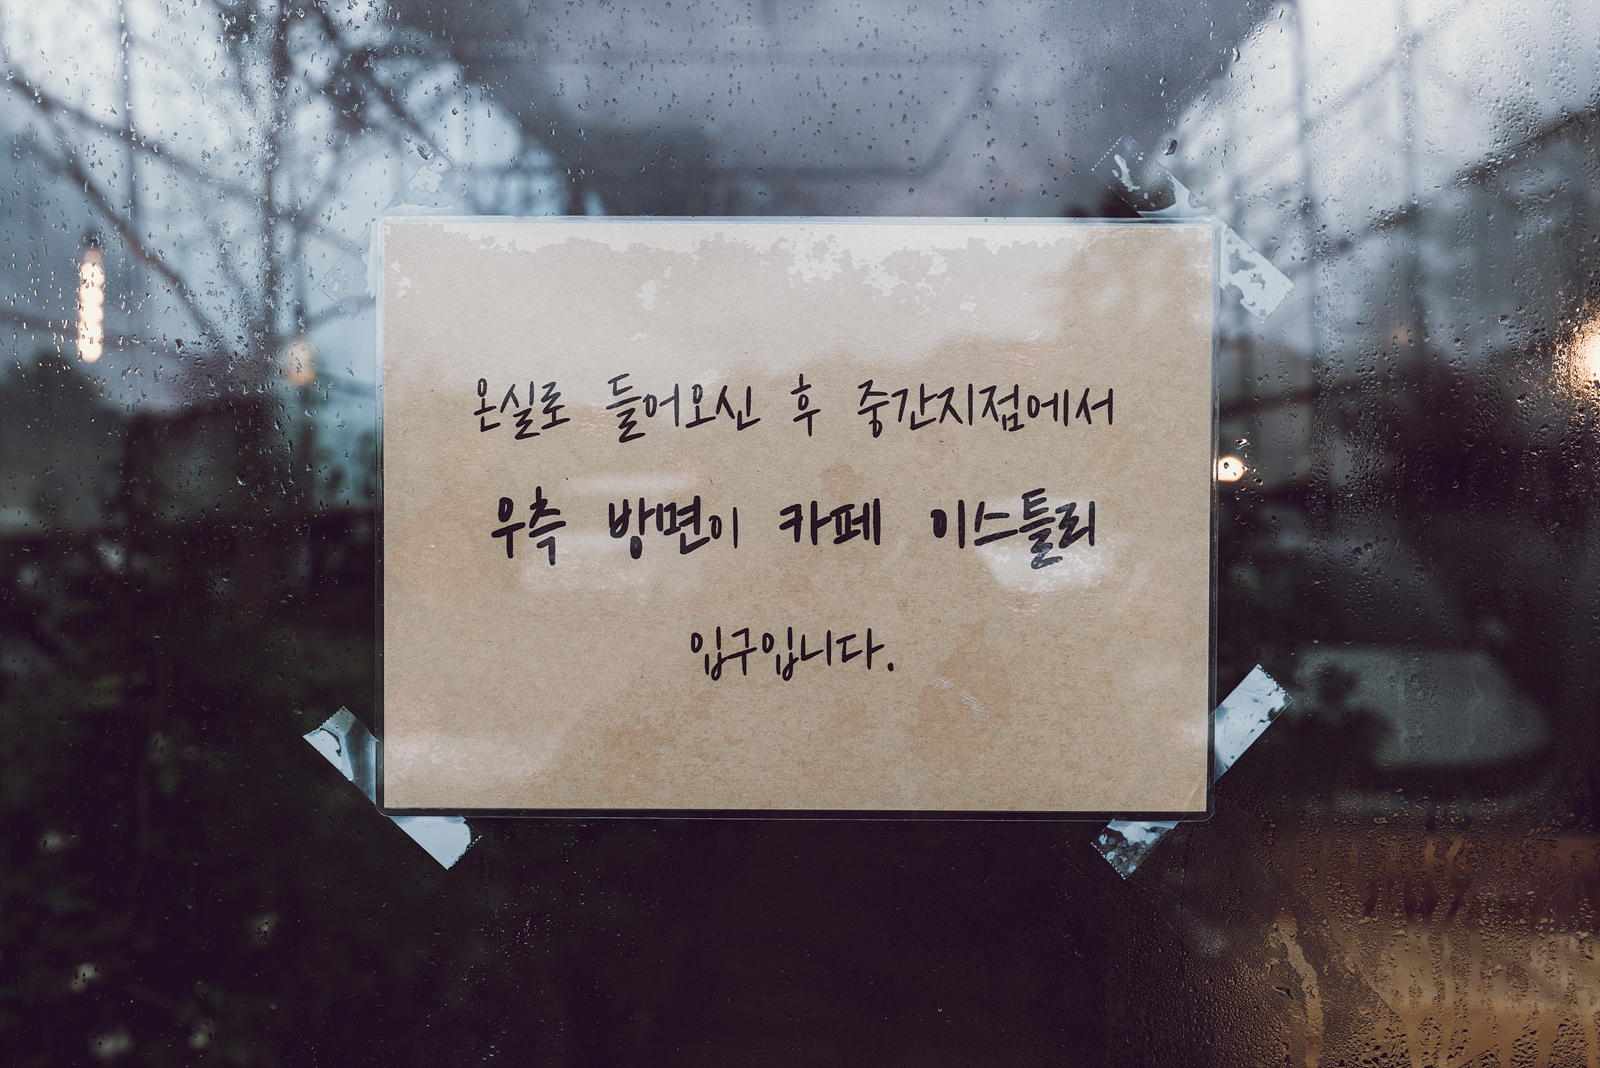 온실로 들어오신 후 중간지점에서
우측 방면이 카페 이스틀리
입구입니다.